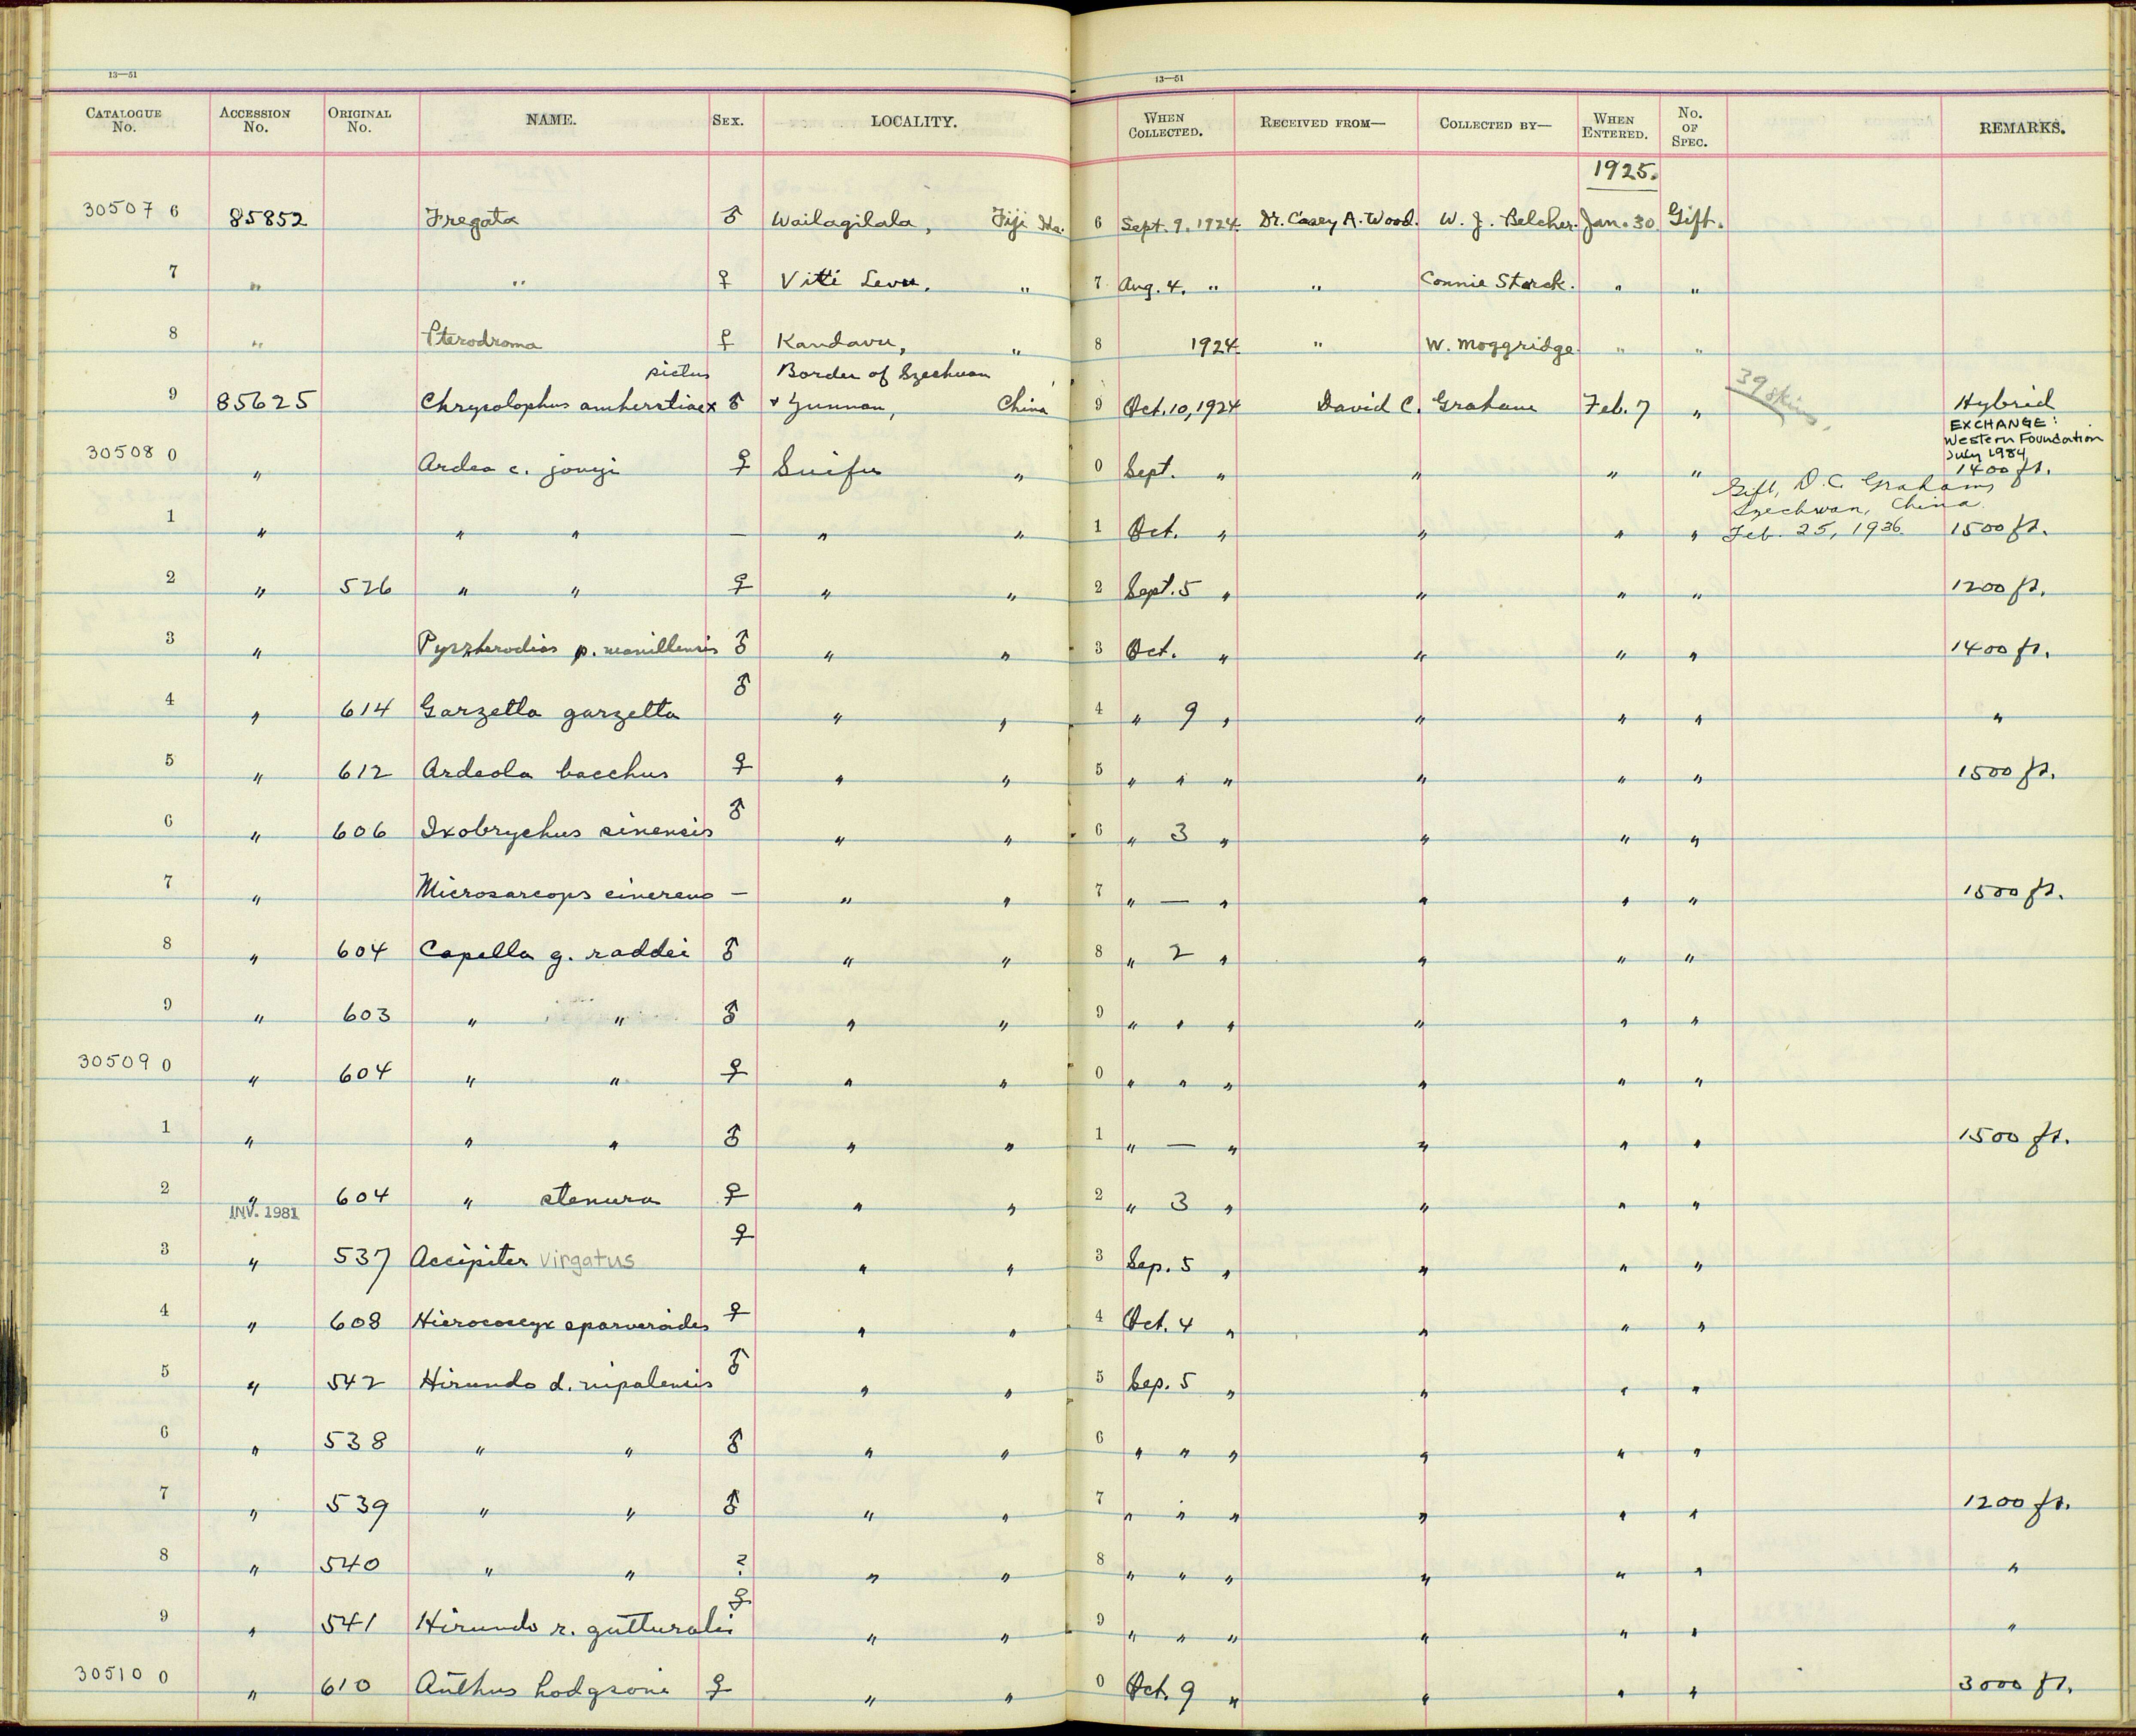 13—51
13—51
CATALOGUE No. ACCESSION No. ORIGINAL No. NAME. SEX. LOCALITY. WHEN COLLECTED. RECEIVED FROM— COLLECTED BY— WHEN ENTERED. No. OF SPEC. REMARKS.
1925.
30507 6 85852 Fregata ♂ Wailagilala, Fiji Ids. 6 Sept. 9, 1924. Dr. Casey A. Wood. W. J. Belcher. Jan. 30 Gift.
7 " " ♀ Viti Levu, " 7 Aug. 4. " " Connie Starck. " "
8 " Pterodroma ♀ Kandavu, " 8 1924. " W. Moggridge. " "
pictus Border of Szechuan
9 85625 Chrysolophus amherstiae x ♂ & Yunnan, China 9 Oct. 10, 1924 David C. Graham Feb. 7 " 39 skins. Hybrid
EXCHANGE:
Western Foundation
July 1984
30508 0 " Ardea c. jouyi ♀ Suifu " 0 Sept. " " " " 1400 ft.
Gift, D. C. Graham,
Szechwan, China.
1 " " " — " " 1 Oct. " " " " Feb. 25, 1936. 1500 ft.
2 " 526 " " ♀ " " 2 Sept. 5 " " " " 1200 ft.
3 " Pyrrherodias p. manillensis ♂ " " 3 Oct. " " " " 1400 ft.
4 " 614 Garzetta garzetta ♂ " " 4 " 9 " " " " "
5 " 612 Ardeola bacchus ♀ " " 5 " " " " " " 1500 ft.
6 " 606 Ixobrychus sinensis ♂ " " 6 " 3 " " " "
7 " Microsarcops cinereus — " " 7 " — " " " " 1500 ft.
8 " 604 Capella g. raddei ♂ " " 8 " 2 " " " "
9 " 603 " " ♂ " " 9 " " " " " "
30509 0 " 604 " " ♀ " " 0 " " " " " "
1 " " " ♂ " " 1 " — " " " " 1500 ft.
2 " 604 " stenura ♀ " " 2 " 3 " " " "
INV. 1981
3 " 537 Accipiter virgatus ♀ " " 3 Sep. 5 " " " "
4 " 608 Hierococcyx sparveroides ♀ " " 4 Oct. 4 " " " "
5 " 542 Hirundo d. nipalensis ♂ " " 5 Sep. 5 " " " "
6 " 538 " " ♂ " " 6 " " " " " "
7 " 539 " " ♂ " " 7 " " " " " " 1200 ft.
8 " 540 " " ? " " 8 " " " " " " "
9 " 541 Hirundo r. gutturalis ♀ " " 9 " " " " " " "
30510 0 " 610 Anthus hodgsoni ♀ " " 0 Oct. 9 " " " " 3000 ft.